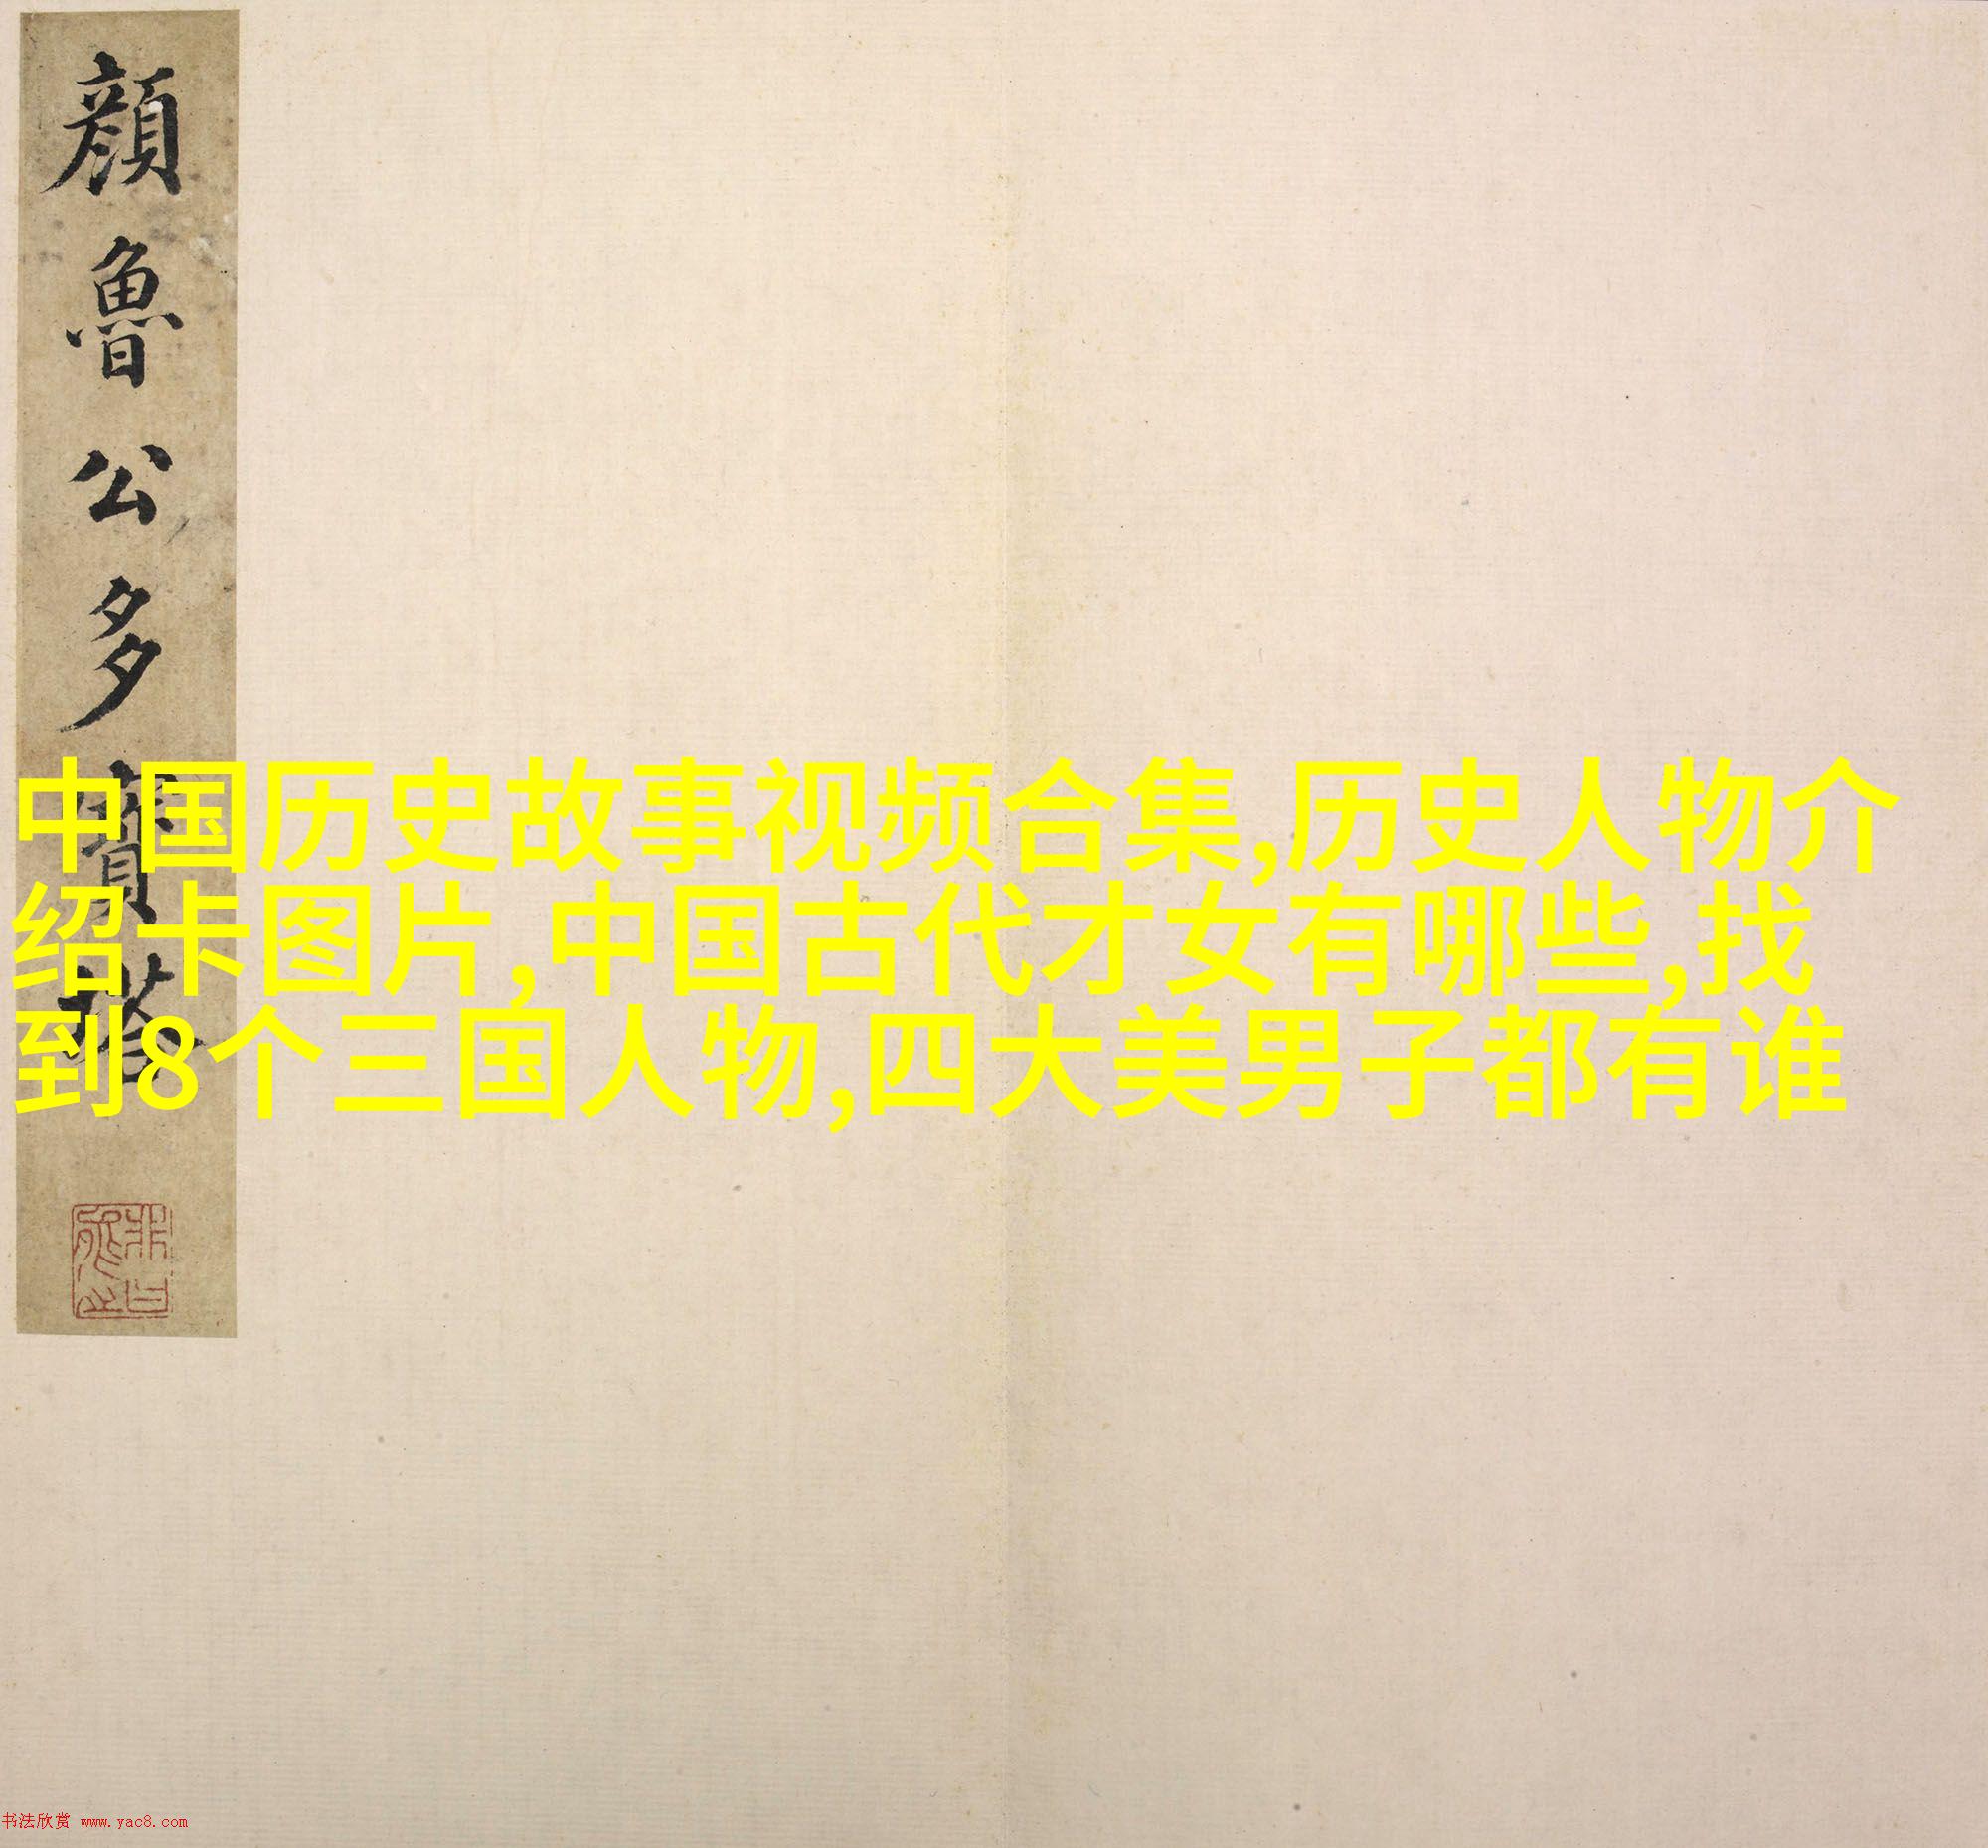 顔魯公多寳塔
中国历史故事视频合集,历史人物介
绍卡图片,中国古代才女有哪些,找
到8个三国人物,四大美男子都有谁
书法欣赏 www.yac8.com